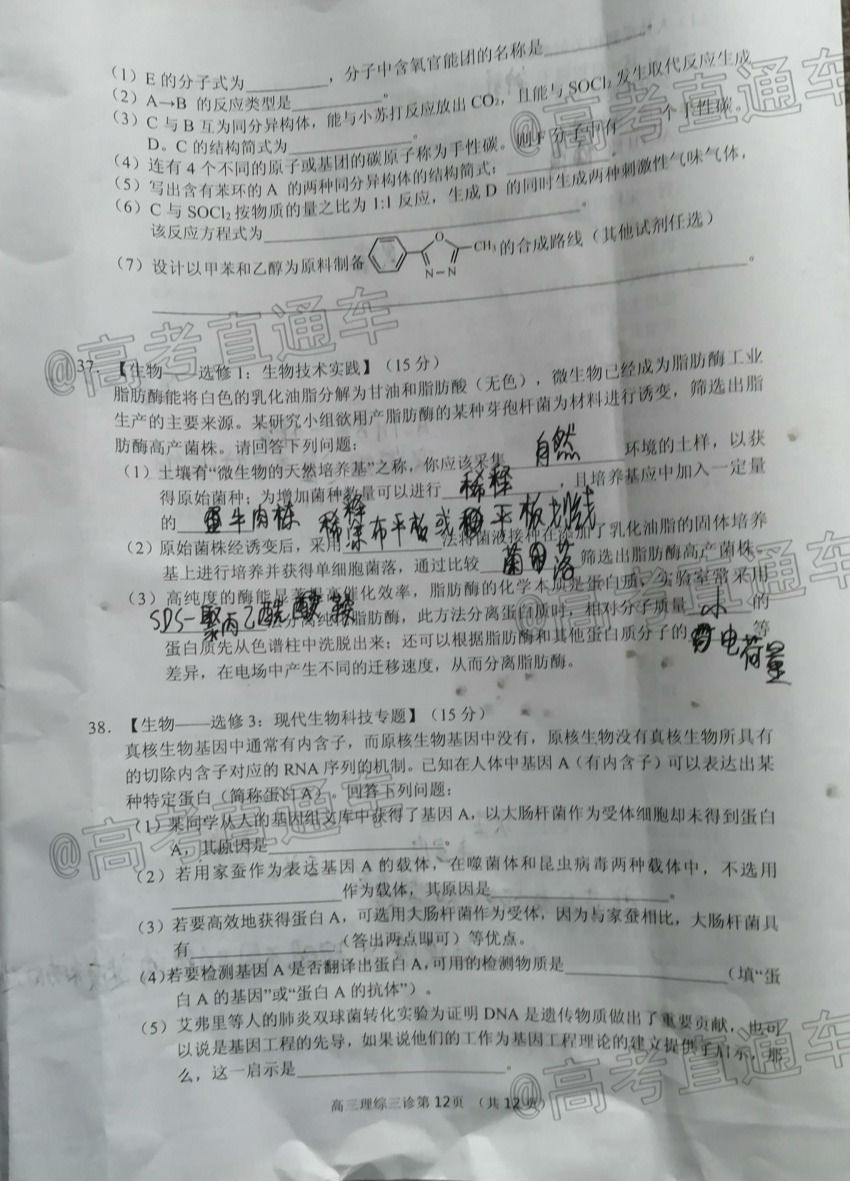 （1）E 的分子式为________，分子中含氧官能团的名称是________。
（2）A→B 的反应类型是________。
（3）C 与 B 互为同分异构体，能与小苏打反应放出 CO₂，且能与 SOCl₂ 发生取代反应生成
D。C 的结构简式为________。
（4）连有 4 个不同的原子或基团的碳原子称为手性碳。则 F 分子中有____个手性碳。
（5）写出含有苯环的 A 的两种同分异构体的结构简式：________
（6）C 与 SOCl₂ 按物质的量之比为 1:1 反应，生成 D 的同时生成两种刺激性气味气体，
该反应方程式为________。
（7）设计以甲苯和乙醇为原料制备 O N—N CH₃ 的合成路线（其他试剂任选）
________。
37．【生物——选修 1：生物技术实践】（15 分）
脂肪酶能将白色的乳化油脂分解为甘油和脂肪酸（无色），微生物已经成为脂肪酶工业
生产的主要来源。某研究小组欲用产脂肪酶的某种芽孢杆菌为材料进行诱变，筛选出脂
肪酶高产菌株。请回答下列问题：
（1）土壤有“微生物的天然培养基”之称，你应该采集 自然 环境的土样，以获
得原始菌种；为增加菌种数量可以进行 稀释 ，且培养基应中加入一定量
的 牛肉
（2）原始菌株经诱变后，采用 稀释涂布平板或 平板划线 法将菌液接种在添加了乳化油脂的固体培养
基上进行培养并获得单细胞菌落，通过比较 菌落 筛选出脂肪酶高产菌株。
（3）高纯度的酶能显著提高催化效率，脂肪酶的化学本质是蛋白质，实验室常采用
SDS-聚丙乙酰酸胺 分离纯化脂肪酶，此方法分离蛋白质时，相对分子质量 小 的
蛋白质先从色谱柱中洗脱出来；还可以根据脂肪酶和其他蛋白质分子的 电荷量 等
差异，在电场中产生不同的迁移速度，从而分离脂肪酶。
38．【生物——选修 3：现代生物科技专题】（15 分）
真核生物基因中通常有内含子，而原核生物基因中没有，原核生物没有真核生物所具有
的切除内含子对应的 RNA 序列的机制。已知在人体中基因 A（有内含子）可以表达出某
种特定蛋白（简称蛋白 A）。回答下列问题：
（1）某同学从人的基因组文库中获得了基因 A，以大肠杆菌作为受体细胞却未得到蛋白
A，其原因是________。
（2）若用家蚕作为表达基因 A 的载体，在噬菌体和昆虫病毒两种载体中，不选用
________作为载体，其原因是________。
（3）若要高效地获得蛋白 A，可选用大肠杆菌作为受体，因为与家蚕相比，大肠杆菌具
有________（答出两点即可）等优点。
（4）若要检测基因 A 是否翻译出蛋白 A，可用的检测物质是________（填“蛋
白 A 的基因”或“蛋白 A 的抗体”）。
（5）艾弗里等人的肺炎双球菌转化实验为证明 DNA 是遗传物质做出了重要贡献，也可
以说是基因工程的先导，如果说他们的工作为基因工程理论的建立提供了启示，那
么，这一启示是________。
高三理综三诊第 12页 （共 12 页）
@高考直通车
@高考直通车
@高考直通车
@高考直通车
@高考直通车